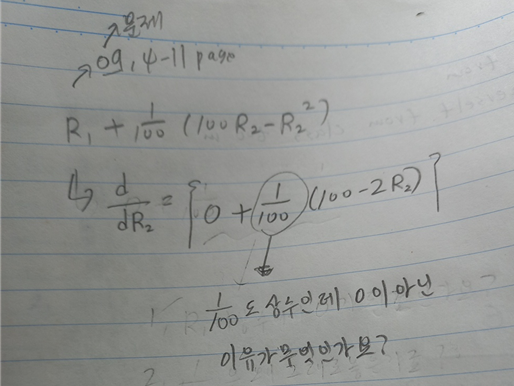 ↗문제
↗09, 4-11 page
R₁ + 1/100 (100R₂ - R₂²)
↳ d/dR₂ = [0 + 1/100 (100 - 2R₂)]
1/100도 상수인데 0이 아닌
이유가 무엇인가요?